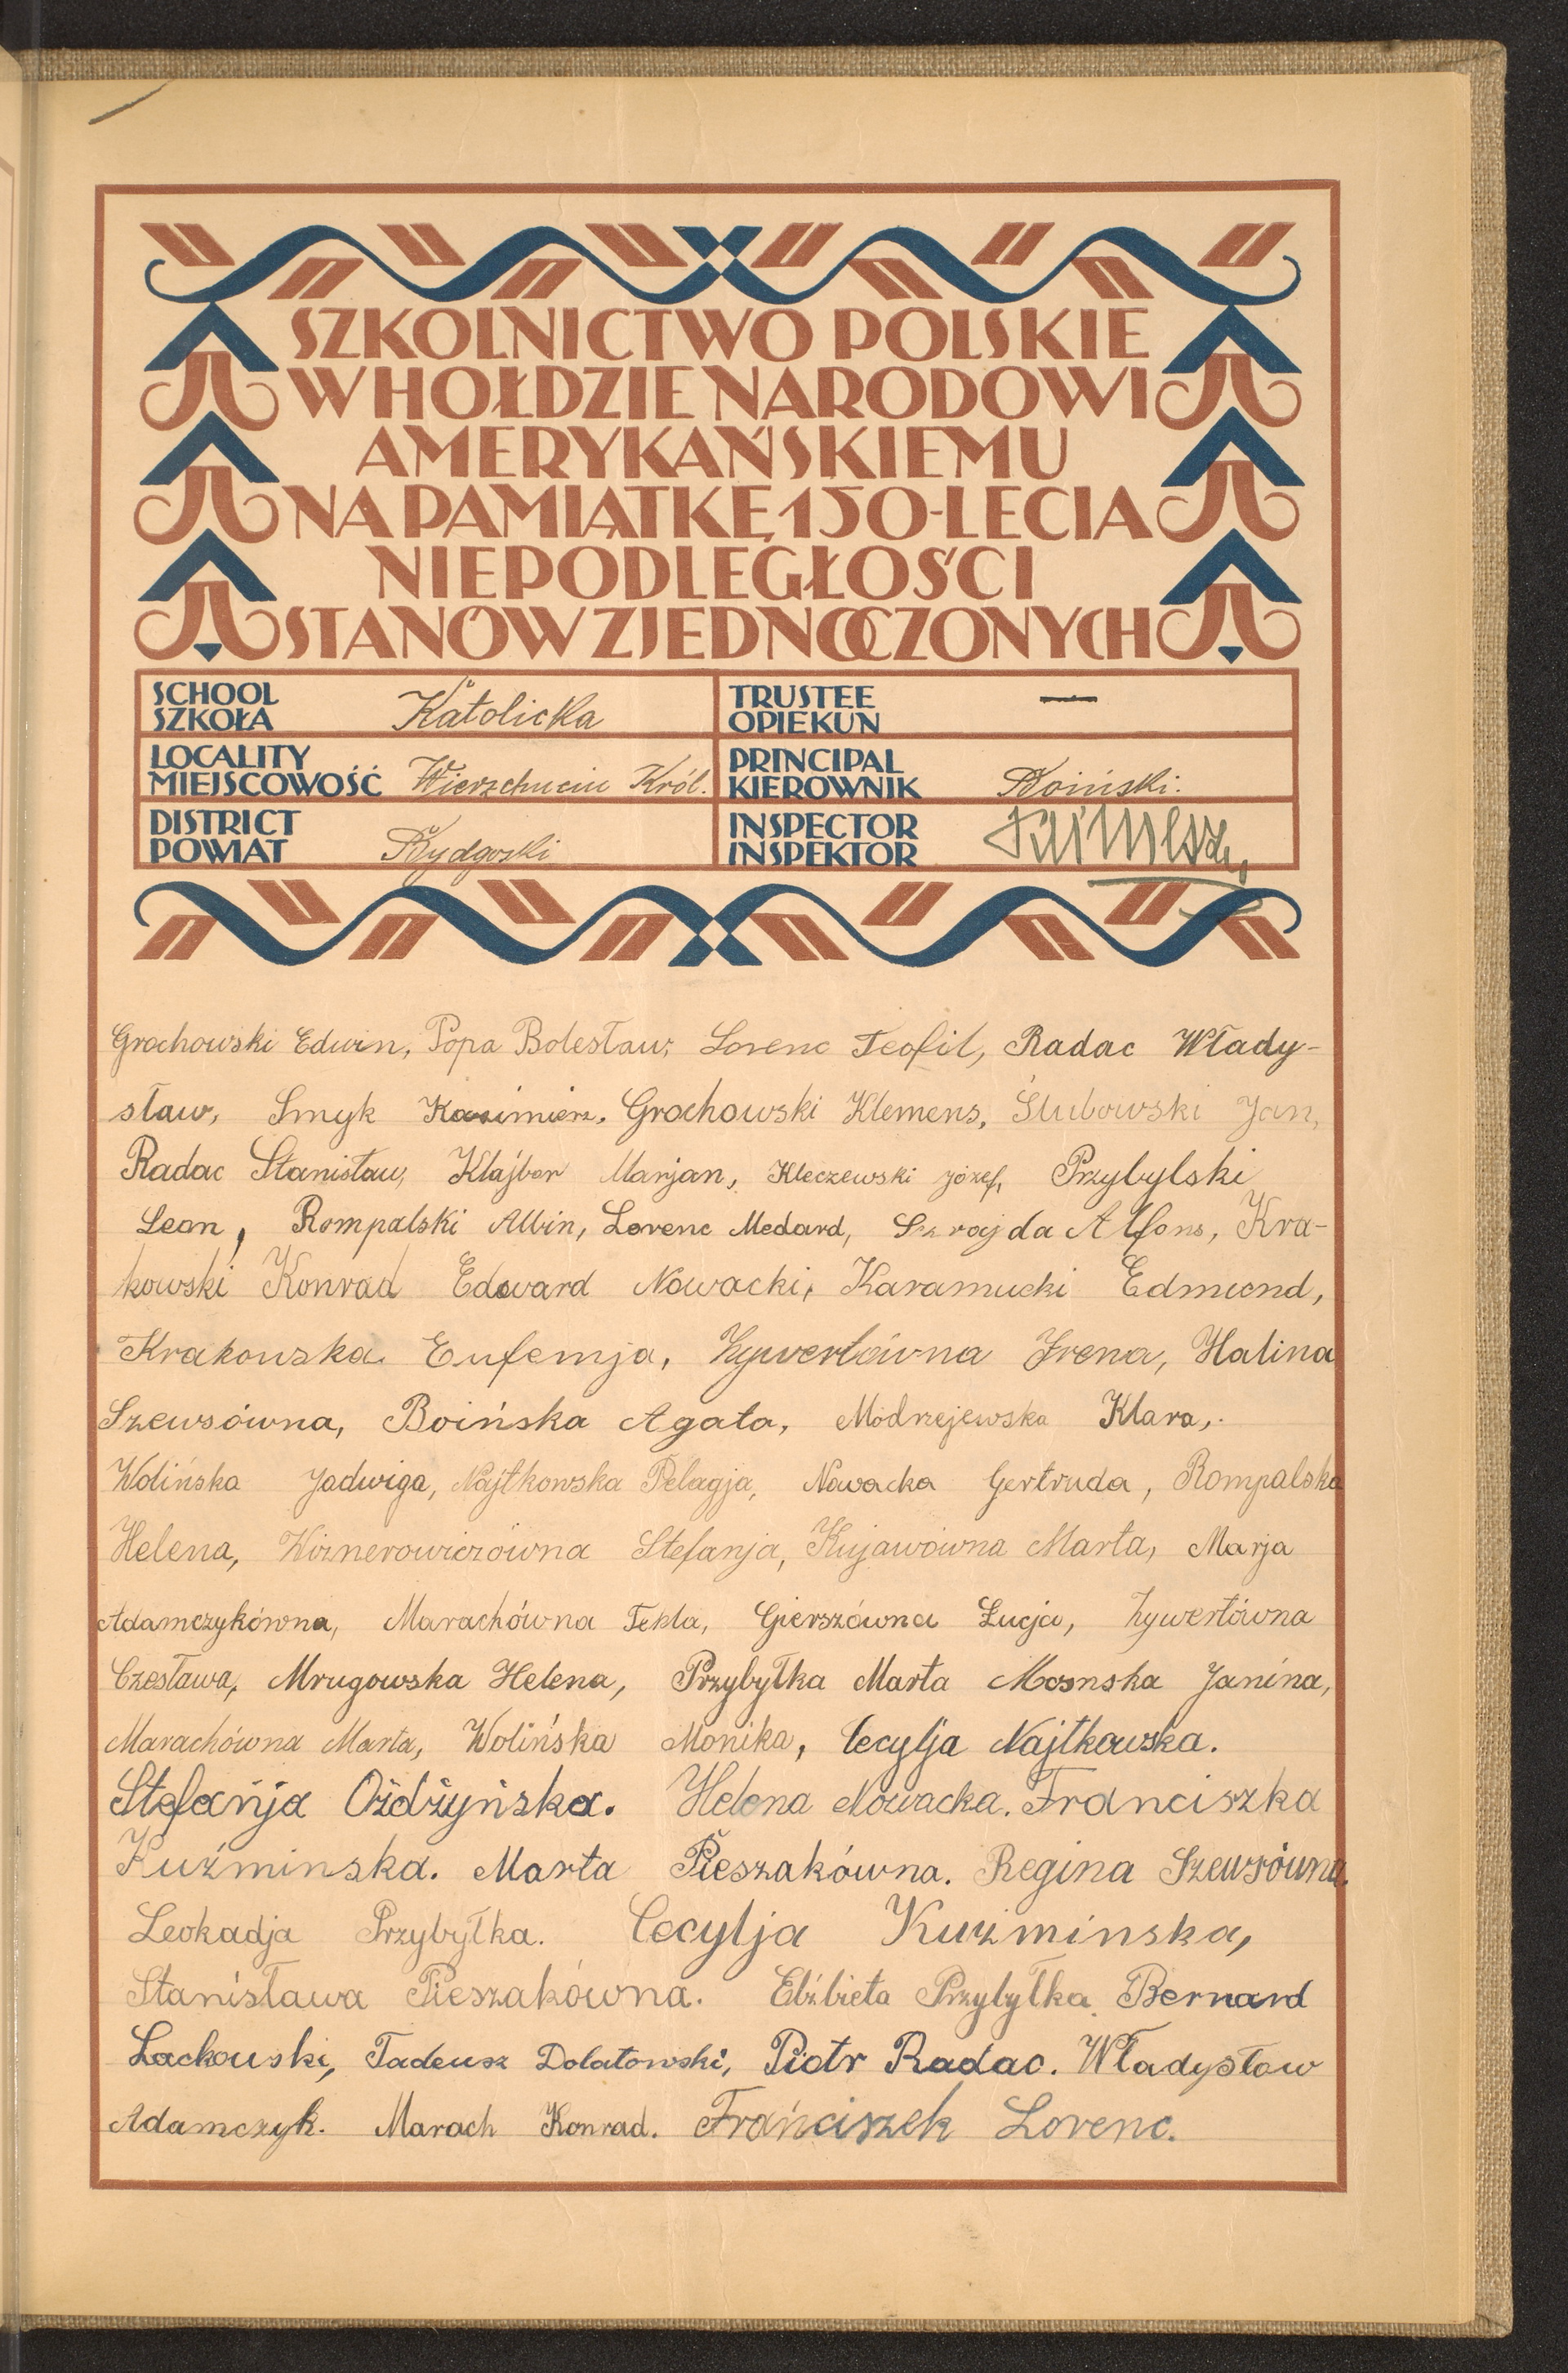 SZKOLNICTWO POLSKIE
W HOŁDZIE NARODOWI
AMERYKAŃSKIEMU
NA PAMIĄTKĘ 150-LECIA
NIEPODLEGŁOŚCI
STANÓW ZJEDNOCZONYCH
SCHOOL
SZKOŁA Katolicka
TRUSTEE
OPIEKUN —
LOCALITY
MIEJSCOWOŚĆ Wierzchucin Król.
PRINCIPAL
KIEROWNIK Boiński.
DISTRICT
POWIAT Bydgoski
INSPECTOR
INSPEKTOR
Grochowski Edwin, Popa Bolesław, Lorenc Teofil, Radac Włady-
sław, Smyk Kazimierz, Grochowski Klemens, Ślubowski Jan,
Radac Stanisław, Klajbor Marjan, Kleczewski Józef, Przybylski
Leon, Rompalski Albin, Lorenc Medard, Szrajda Alfons, Kra-
kowski Konrad Edward Nowacki, Karamucki Edmund,
Krakowska Eufemja, Żywertówna Irena, Halina
Szewsówna, Boińska Agata, Modrzejewska Klara,
Wolińska Jadwiga, Najtkowska Pelagja, Nowacka Gertruda, Rompalska
Helena, Wiznerowiczówna Stefanja, Kujawówna Marta, Marja
Adamczykówna, Marachówna Tekla, Gierszówna Łucja, Żywertówna
Czesława, Mrugowska Helena, Przybyłka Marta Janina,
Marachówna Marta, Wolińska Monika, Cecylja Najtkowska.
Stefanja Ożdżyńska. Helena Nowacka. Franciszka
Kuźminska. Marta Pieszakówna. Regina Szewsówna.
Leokadja Przybyłka. Cecylja Kuzminska,
Stanisława Pieszakówna. Elżbieta Przybyłka Bernard
Lackowski, Tadeusz Dolatowski, Piotr Radac. Władysław
Adamczyk. Marach Konrad. Franciszek Lorenc.